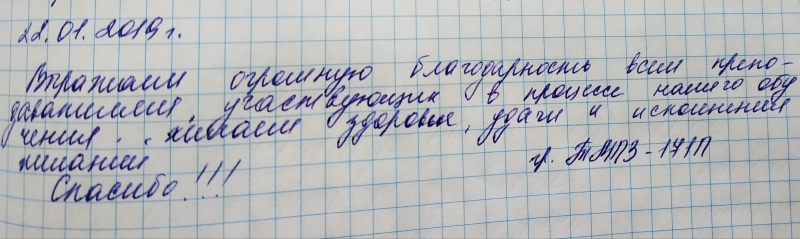 22.01.2019г.
Выражаем огромную благодарность всем препо-
давателям, участвующих в процессе нашего обу
чения. желаем здоровья, удачи и исполнения
желания
гр. ТМПЗ-171П
Спасибо!!!